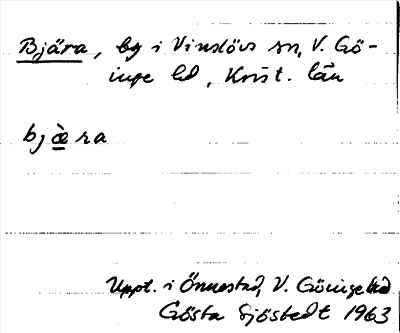 Bjära, by i Vinslövs sn, V. Gö-
inge hd, Krist. län
bjæ̀ra
Uppt. i Önnestad, V. Göinge hd
Gösta Sjöstedt 1963